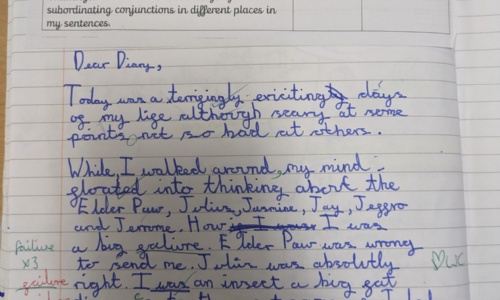 subordinating conjunctions in different places in
my sentences.
Dear Diary,
Today was a terrigingly exiciting days
of my lige although scary at some
points not so bad at others.
While, I walked around, my mind
gloated into thinking abort the
Elder Paw, Julius, Jasmine, Jay, Jeggro
and Jerome. How I was
a big galiure. Elder Paw was wrong
failure
x3
to send me. Julin was absolutly
galiure
right. I was an insect a big gat